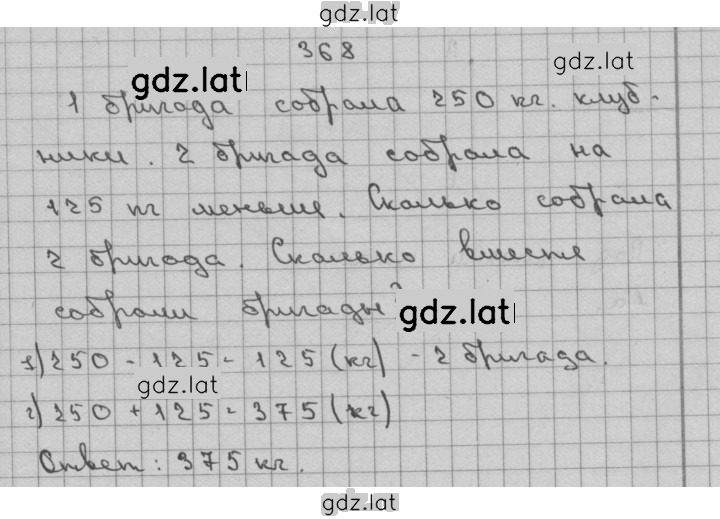 gdz.lat
368
gdz.lat
gdz.lat
1 бригада собрала 250 кг. клуб-
ники. 2 бригада собрала на
125 кг меньше. Сколько собрала
2 бригада. Сколько вместе
собрали бригады?
gdz.lat
1) 250 - 125 = 125 (кг) - 2 бригада.
gdz.lat
2) 250 + 125 = 375 (кг)
Ответ: 375 кг.
gdz.lat